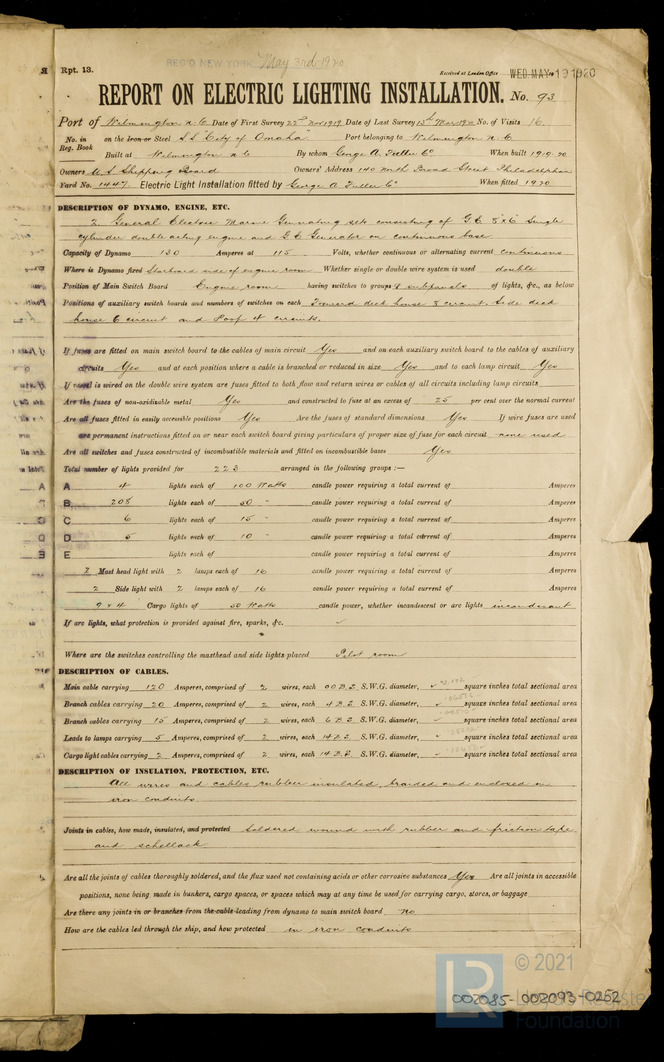 Rpt. 13.
REC'D NEW YORK May 3rd 1920
Received at London Office WED. MAY 19 1920
REPORT ON ELECTRIC LIGHTING INSTALLATION. No. 93
Port of Wilmington N.C. Date of First Survey 22nd Nov 1919 Date of Last Survey 15th Mar 1920 No. of Visits 16
No. in Reg. Book on the Iron or Steel S.S "City of Omaha" Port belonging to Wilmington N.C.
Built at Wilmington N.C By whom George A. Fuller Co When built 1919-20
Owners U.S Shipping Board Owners' Address 140 North Broad Street Philadelphia
Yard No. 1447. Electric Light Installation fitted by George A. Fuller Co When fitted 1920
DESCRIPTION OF DYNAMO, ENGINE, ETC.
2. General Electric Marine Generating sets consisting of G.E. 8"x6" Single
cylinder double acting engine and G.E Generator on continuous base
Capacity of Dynamo 130 Amperes at 115 Volts, whether continuous or alternating current continuous
Where is Dynamo fixed Starboard side of engine room Whether single or double wire system is used double
Position of Main Switch Board Engine room having switches to groups 8 subpanels of lights, &c., as below
Positions of auxiliary switch boards and numbers of switches on each Forward deck house 8 circuit. Side deck
house 6 circuit and Poop 4 circuits.
If fuses are fitted on main switch board to the cables of main circuit Yes and on each auxiliary switch board to the cables of auxiliary
circuits Yes and at each position where a cable is branched or reduced in size Yes and to each lamp circuit Yes
If vessel is wired on the double wire system are fuses fitted to both flow and return wires or cables of all circuits including lamp circuits
Are the fuses of non-oxidizable metal Yes and constructed to fuse at an excess of 25 per cent over the normal current
Are all fuses fitted in easily accessible positions Yes Are the fuses of standard dimensions Yes If wire fuses are used
are permanent instructions fitted on or near each switch board giving particulars of proper size of fuse for each circuit none used
Are all switches and fuses constructed of incombustible materials and fitted on incombustible bases Yes
Total number of lights provided for 223 arranged in the following groups :—
A 4 lights each of 100 Watts candle power requiring a total current of Amperes
B 208 lights each of 50 " candle power requiring a total current of Amperes
C 6 lights each of 15 " candle power requiring a total current of Amperes
D 5 lights each of 10 " candle power requiring a total current of Amperes
E lights each of candle power requiring a total current of Amperes
2 Mast head light with 2 lamps each of 16 candle power requiring a total current of Amperes
2 Side light with 2 lamps each of 16 candle power requiring a total current of Amperes
9 x 4 Cargo lights of 50 Watts candle power, whether incandescent or arc lights incandescent
If arc lights, what protection is provided against fire, sparks, &c.
Where are the switches controlling the masthead and side lights placed Pilot room
DESCRIPTION OF CABLES.
Main cable carrying 120 Amperes, comprised of 2 wires, each 00 B.S S.W.G. diameter, square inches total sectional area
Branch cables carrying 20 Amperes, comprised of 2 wires, each 4 B.S S.W.G. diameter, square inches total sectional area
Branch cables carrying 15 Amperes, comprised of 2 wires, each 6 B.S S.W.G. diameter, square inches total sectional area
Leads to lamps carrying 5 Amperes, comprised of 2 wires, each 14 B.S S.W.G. diameter, square inches total sectional area
Cargo light cables carrying 2 Amperes, comprised of 2 wires, each 14 B.S S.W.G. diameter, square inches total sectional area
DESCRIPTION OF INSULATION, PROTECTION, ETC.
All wires and cables rubber insulated, braided and enclosed in
iron conduits
Joints in cables, how made, insulated, and protected Soldered wound with rubber and friction tape
and schellack
Are all the joints of cables thoroughly soldered, and the flux used not containing acids or other corrosive substances Yes Are all joints in accessible
positions, none being made in bunkers, cargo spaces, or spaces which may at any time be used for carrying cargo, stores, or baggage
Are there any joints in or branches from the cable leading from dynamo to main switch board no
How are the cables led through the ship, and how protected in iron conduits
© 2021
LR Lloyd's Register
Foundation
002085-002093-0252